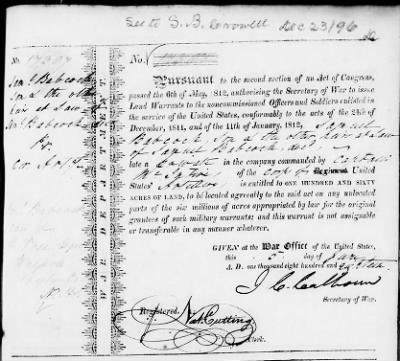 Sent to S. B. Crowell Dec 23/96
No. 17307
No.
Jas. Babcock
Son & the other
heir at Law of
Babcock
Pr.
WAR DEPARTMENT.
Pursuant to the second section of an Act of Congress,
passed the 6th of May, 1812, authorising the Secretary of War to issue
Land Warrants to the noncommissioned Officers and Soldiers enlisted in
the service of the United States, conformably to the acts of the 24th
December, 1811, and of the 11th of January, 1812,
Babcock Son & the other heirs at Law
of Babcock, dec'd
late a in the company commanded by Captain
of the Corps of United
States' Artillery is entitled to ONE HUNDRED AND SIXTY
ACRES OF LAND, to be located agreeably to the said act on any unlocated
parts of the six millions of acres appropriated by law for the original
grantees of such military warrants; and this warrant is not assignable
or transferable in any manner whatever.
GIVEN at the War Office of the United States,
this 5 day of Jany
A. D. one thousand eight hundred and
J. C. Calhoun
Secretary of War.
Registered.
Nat. Cutting
Clerk.